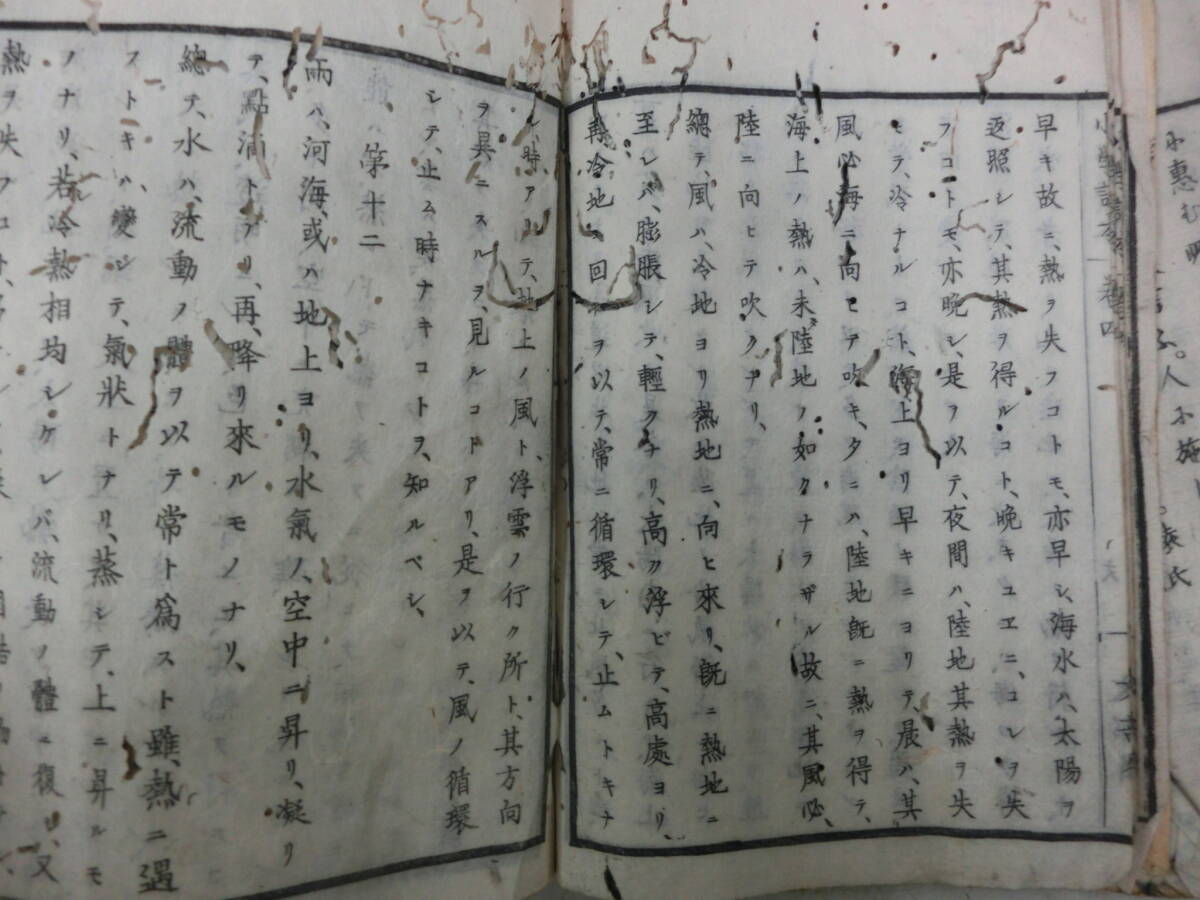 早キ故ニ、熱ヲ失フコトモ、亦早シ、海水ハ、太陽ヲ
返照シテ、其熱ヲ得ルコト、晩キユヱニ、コレヲ失
フコトモ、亦晩シ、是ヲ以テ、夜間ハ、陸地其熱ヲ失
ヒテ、冷ナルコト、海上ヨリ早キニヨリテ、晨ハ、其
風必海ニ向ヒテ吹キ、夕ニハ、陸地既ニ熱ヲ得テ、
海上ノ熱ハ、未陸地ノ如クナラザル故ニ、其風必、
陸ニ向ヒテ吹クナリ、
總テ、風ハ、冷地ヨリ熱地ニ、向ヒ來リ、既ニ熱地ニ
至レバ、膨脹シテ、輕クナリ、高ク浮ビテ、高處ヨリ、
再冷地ニ回ルヲ以テ、常ニ循環シテ、止ムトキナ
シ、時アリテ、地上ノ風ト、浮雲ノ行ク所ト、其方向
ヲ異ニスルヲ、見ルコトアリ、是ヲ以テ、風ノ循環
シテ、止ム時ナキコトヲ、知ルベシ、
第十二
雨ハ、河海、或ハ地上ヨリ、水氣ノ、空中ニ昇リ、凝リ
テ、點滴トナリ、再、降リ來ルモノナリ、
總テ、水ハ、流動ノ體ヲ以テ常ト爲スト雖、熱ニ遇
ストキハ、變シテ、氣狀トナリ、蒸シテ、上ニ昇ルモ
ノナリ、若冷熱相均シケレバ、流動ノ體ニ復リ、又
熱ヲ失フコト